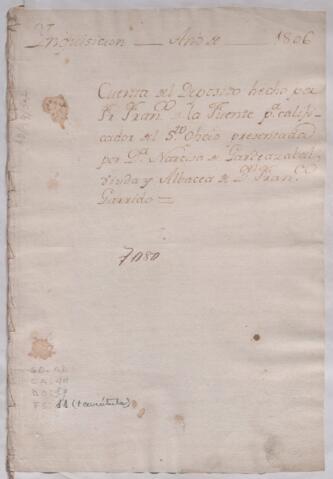 Ynquisicion — Año de 1806
Cuenta del Deposito hecho por
Fr Fran.co de la Fuente p.a califi-
cador del S.to Oficio presentada
por D.a Narcisa de Gardeazabal
Viuda y Albacea de D.n Fran.co
Garrido —
CA: 40
DO: 59
FS: 11 (+ carátula)